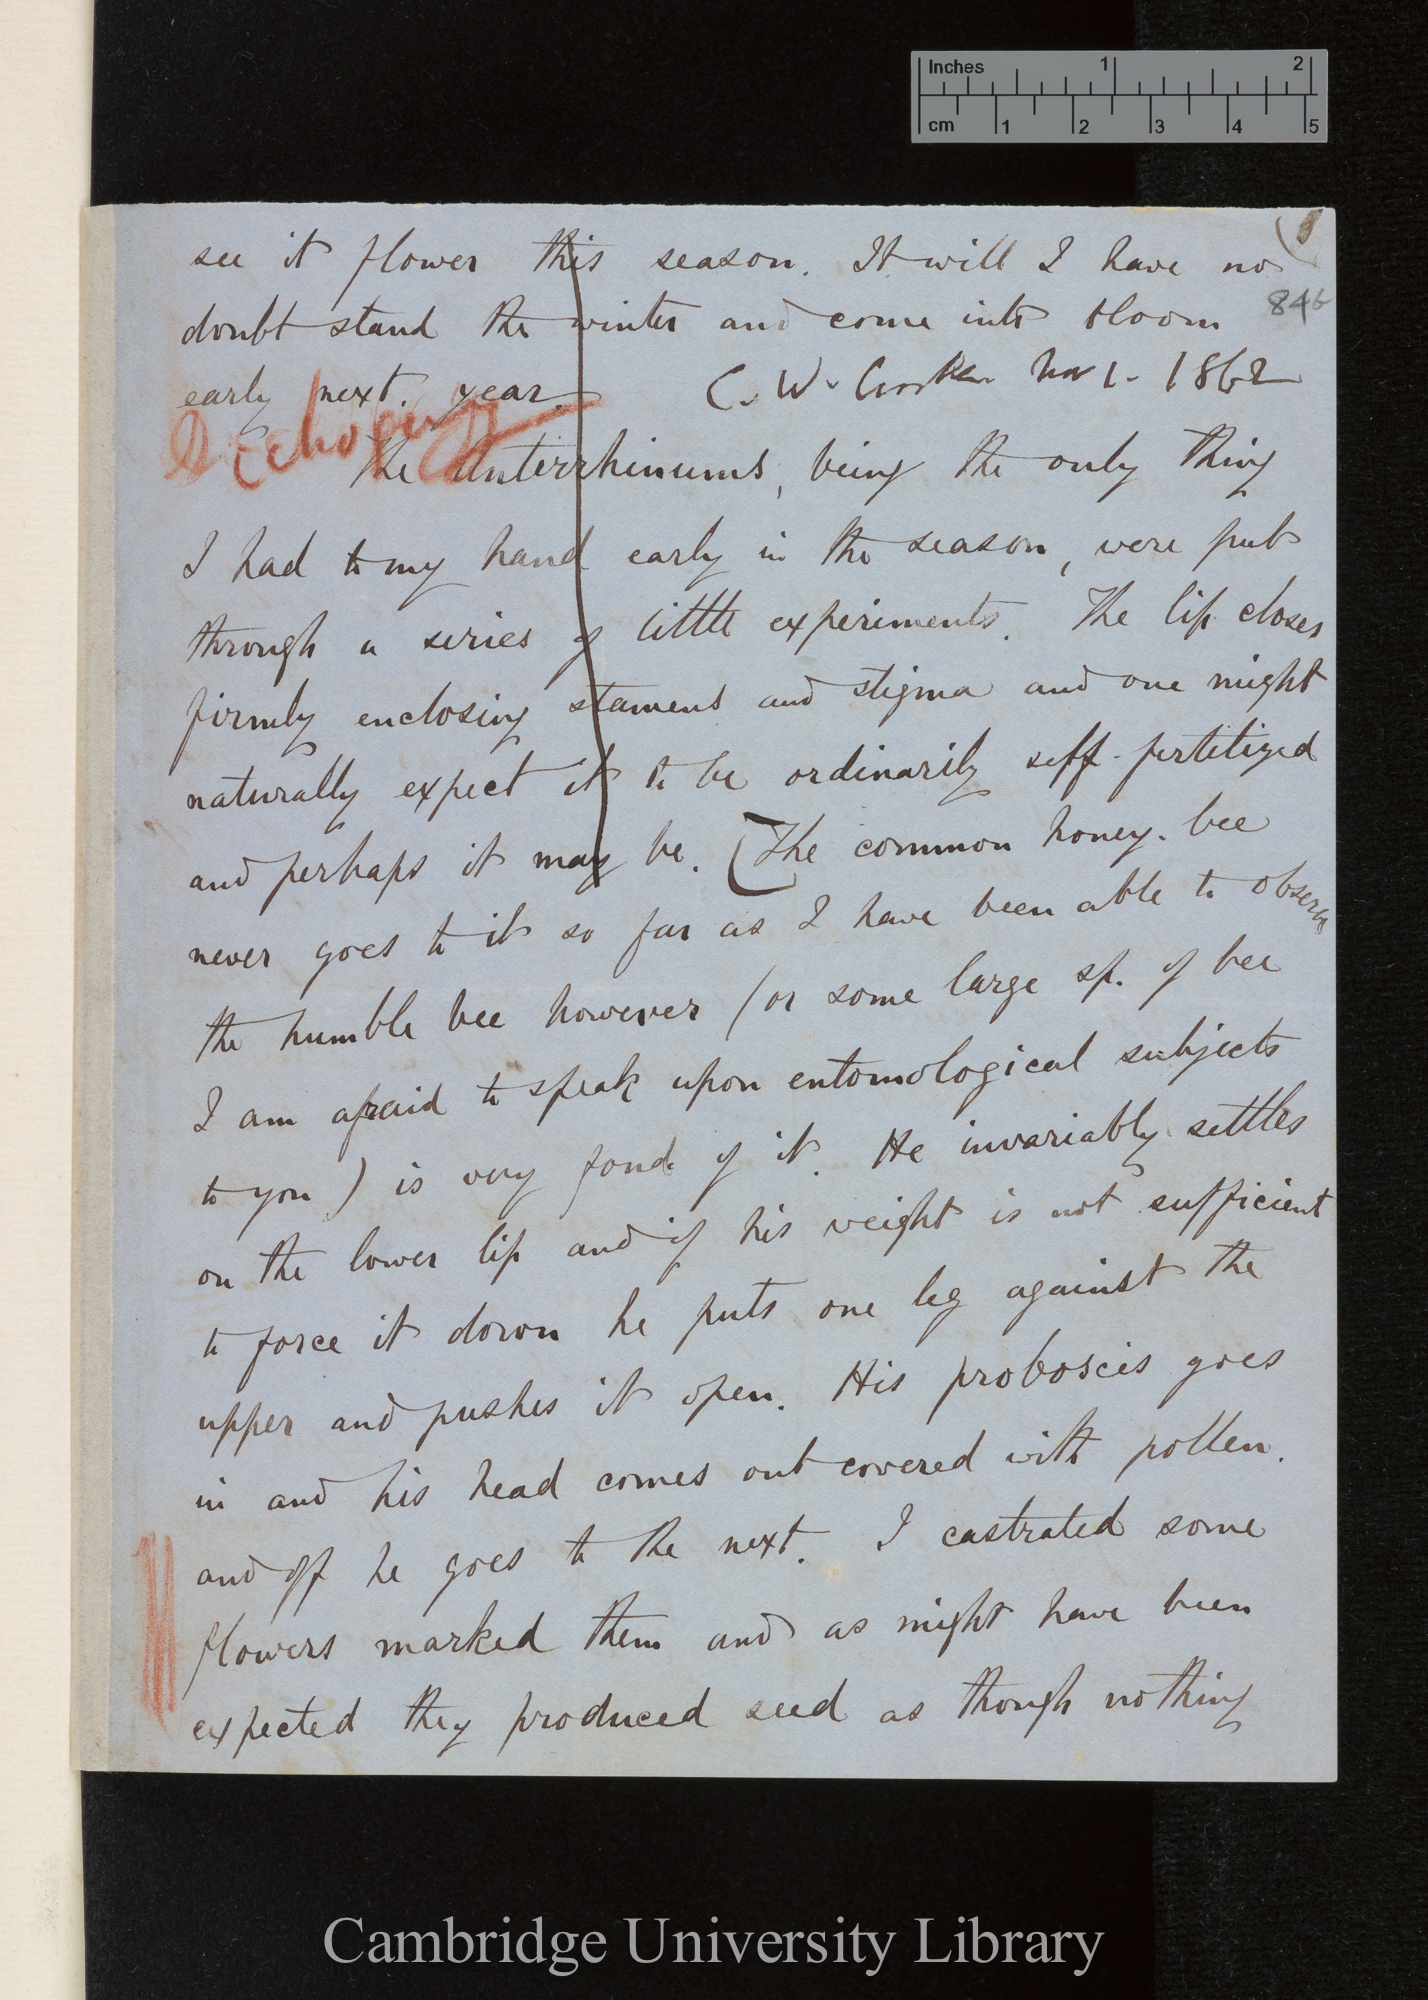 Inches 1 2
cm 1 2 3 4 5
see it flower this season. It will I have no
846
doubt stand the winter and come into bloom
early next. year.
C. W. Crocker Nov 1. 1862
Dichogamy
The Anterrhinums, being the only thing
I had to my hand early in the season, were put
through a series of little experiments. The lip closes
firmly enclosing stamens and stigma and one might
naturally expect it to be ordinarily self-fertilized
and perhaps it may be. [The common honey-bee
never goes to it so far as I have been able to observe
the humble bee however (or some large sp. of bee
I am afraid to speak upon entomological subjects
to you) is very fond of it. He invariably settles
on the lower lip and if his weight is not sufficient
to force it down he puts one leg against the
upper and pushes it open. His proboscis goes
in and his head comes out covered with pollen.
and off he goes to the next. I castrated some
flowers marked them and as might have been
expected they produced seed as though nothing
Cambridge University Library